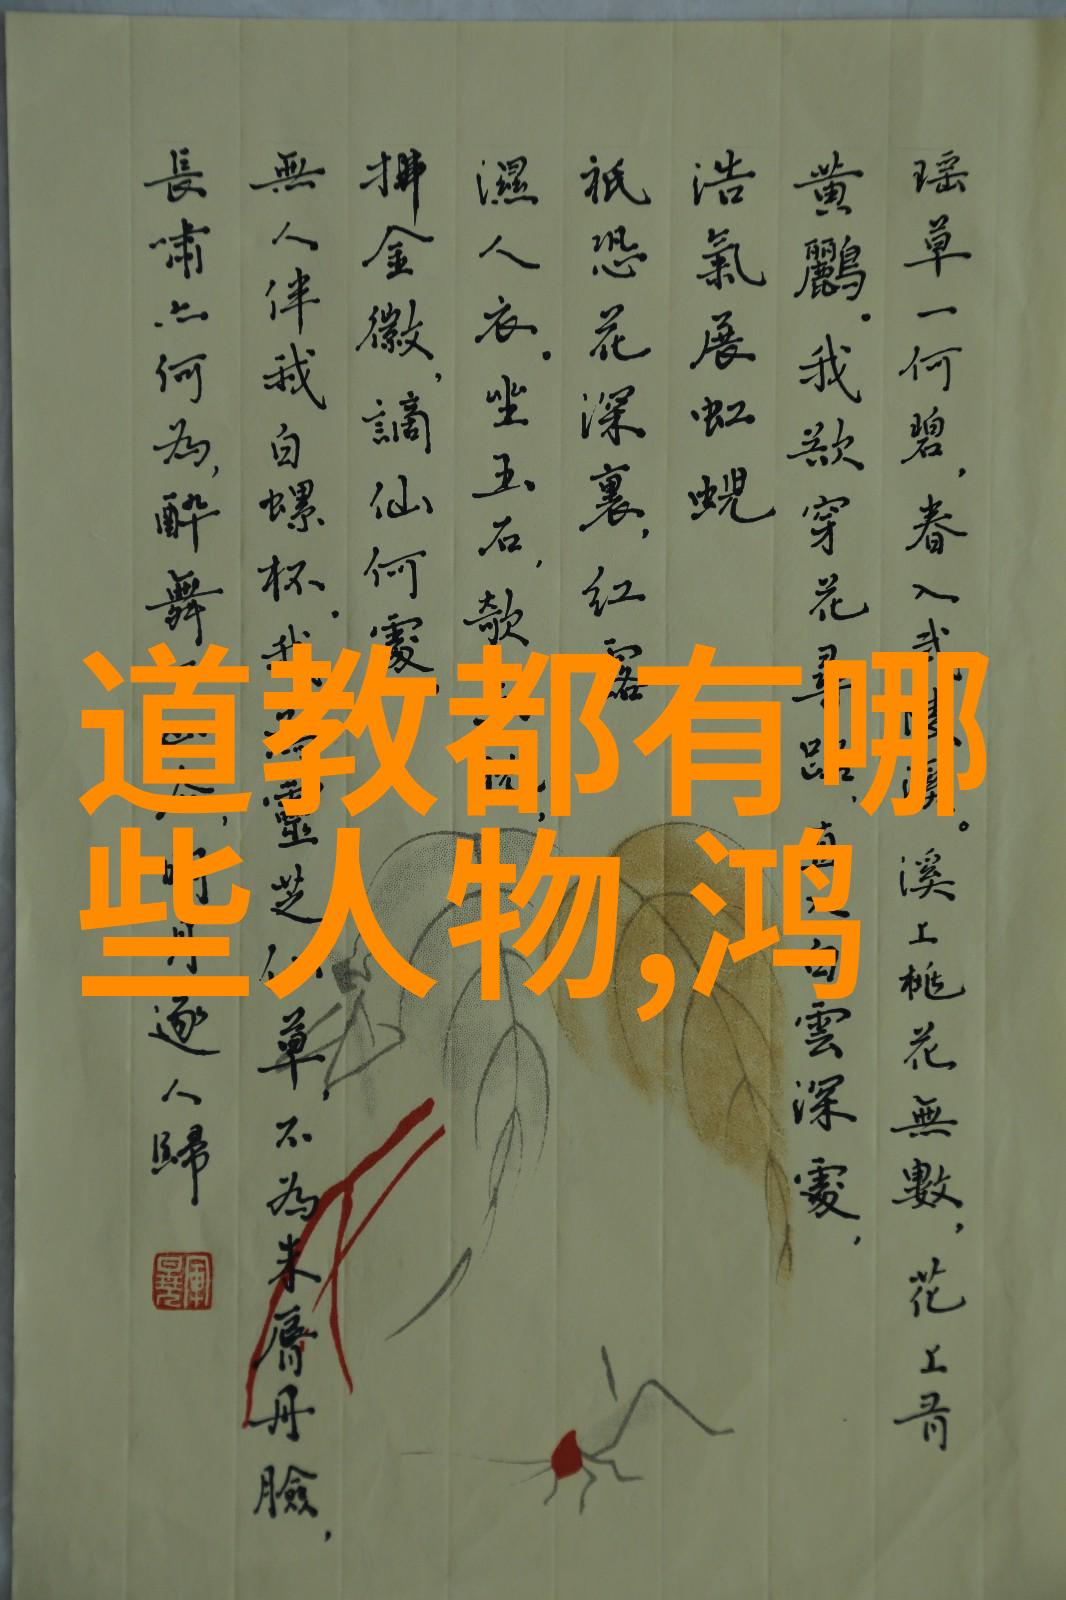 瑶草一何碧，春入武陵溪。溪上桃花無數，花上有
黄鸝。我欲穿花尋路，直入白雲深處，
浩氣展虹蜺
祇恐花深裏，紅露
濕人衣。坐玉石，欹玉枕，
拂金徽，謫仙何處，
無人伴我白螺杯。我為靈芝仙草，不為朱脣丹臉，
長嘯亦何為，醉舞下山去，明月逐人歸
道教都有哪
些人物,鸿